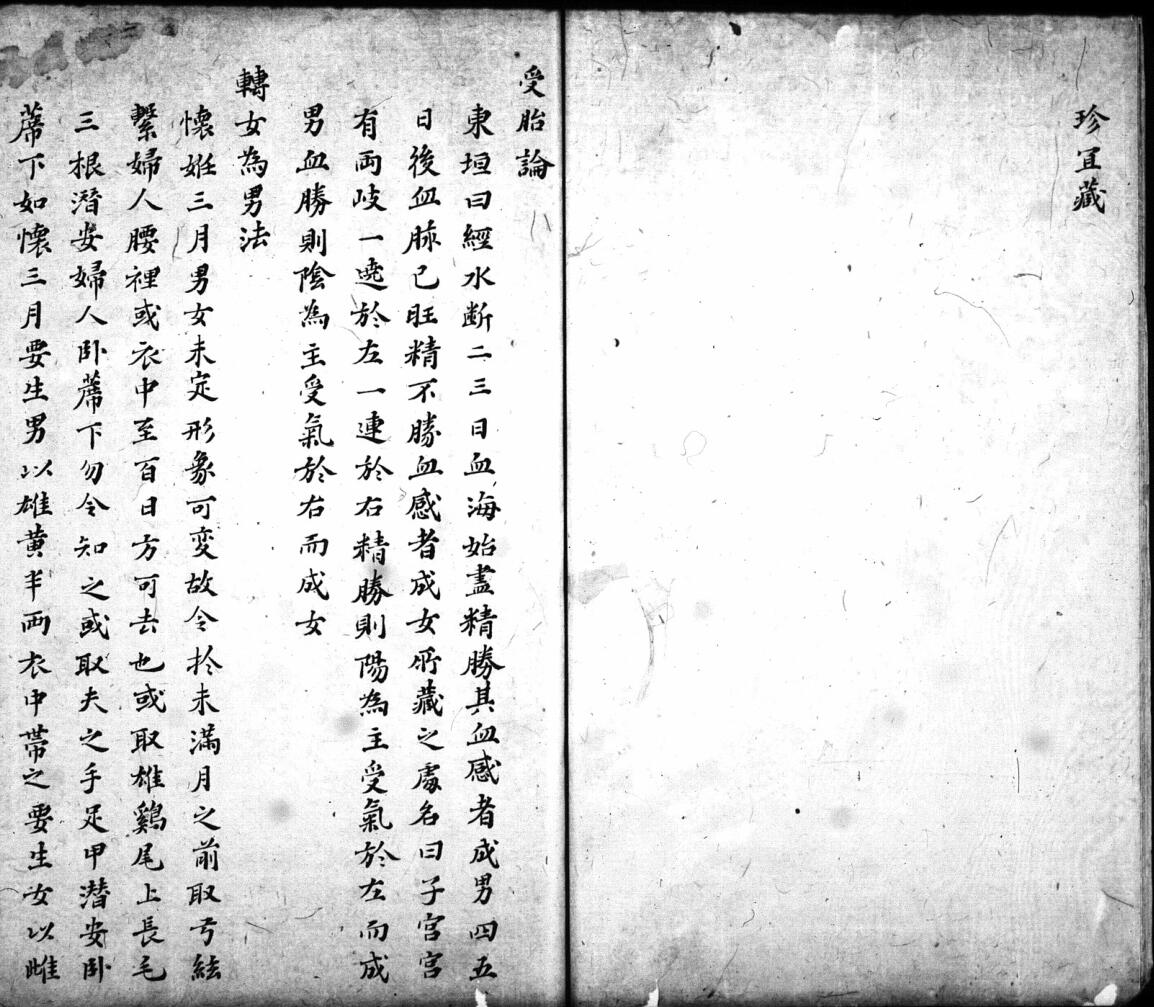 珍宜藏
受胎論
東垣曰經水断二三日血海始盡精勝其血感者成男四五
日後血脉已旺精不勝血感者成女所藏之處名曰子宮宮
有两岐一遶於左一連於右精勝則陽為主受氣於左而成
男血勝則陰為主受氣於右而成女
轉女為男法
懷姙三月男女未定形象可变故令扵未滿月之前取弓絃
繫婦人腰裡或衣中至百日方可去也或取雄鷄尾上長毛
三根潛安婦人卧蓆下勿令知之或取夫之手足甲潜安卧
蓆下如懷三月要生男以雄黄半两衣中帶之要生女以雌